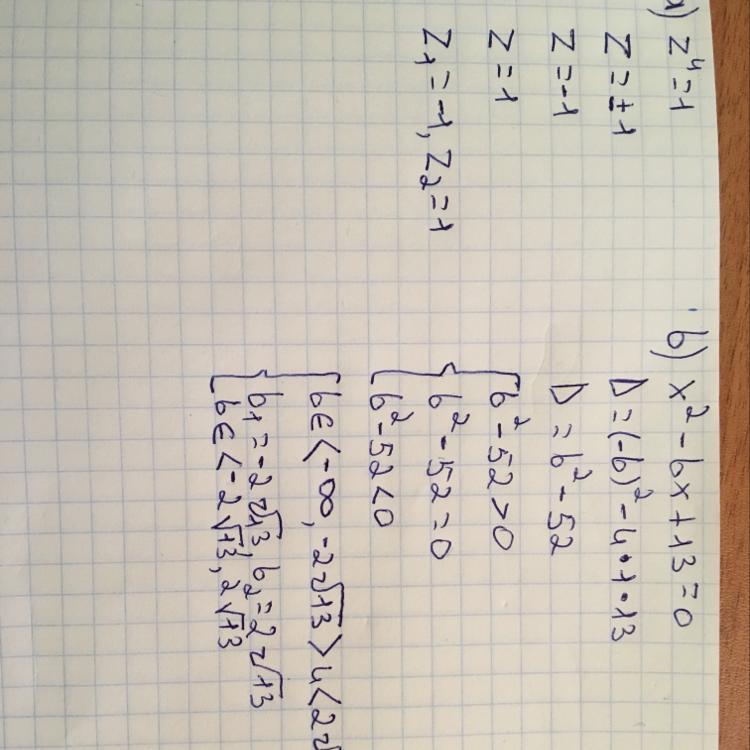 a) z⁴=1
z=±1
z=-1
z=1
z₁=-1, z₂=1
b) x²-bx+13=0
D=(-b)²-4•1•13
D=b²-52
b²-52>0
b²-52=0
b²-52<0
b∈<-∞,-2√13>u<2√
b₁=-2√13, b₂=2√13
b∈<-2√13, 2√13